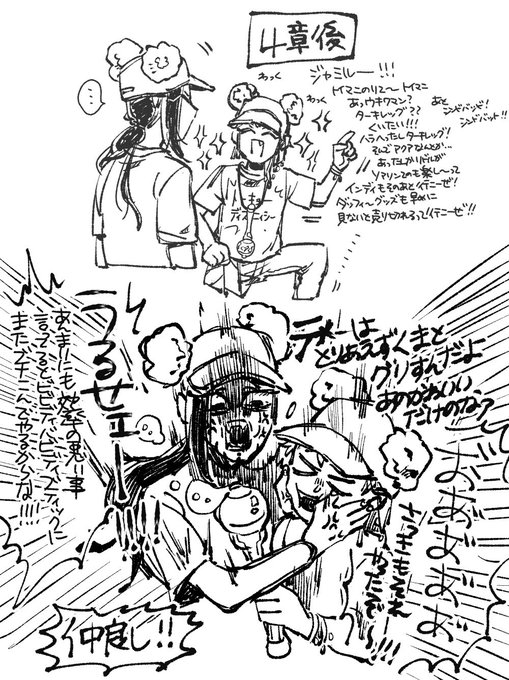 4章後
わっく
わっく
ジャミルー!!!
トイマニのりて〜 トイマニ
あっウキワマン?
ターキーレッグ??
くいたい!!!
ハラへったしターキレッグ!
そんでアクアなんとか…
あったしかいドルが
Sマリンてのも楽し〜って
インディもそのあとイテニーゼ!
ダッフィ〜グッズも早めに
見ないと売り切れるって!イテニーゼ!!
あと
シンドバッド!
シンドバット!!
…
ディズニーシー
うるせェー!!!!
あんまりにも効率の悪い事
言ってると
またズドーンズやるからな!!!!
テメーは
とりあえずくまと
グリすんだよ
あのかわいい
だけのなァ
おあ゛あ゛あ゛あ゛
さっきもそれ
やったぞ〜
仲良し!!